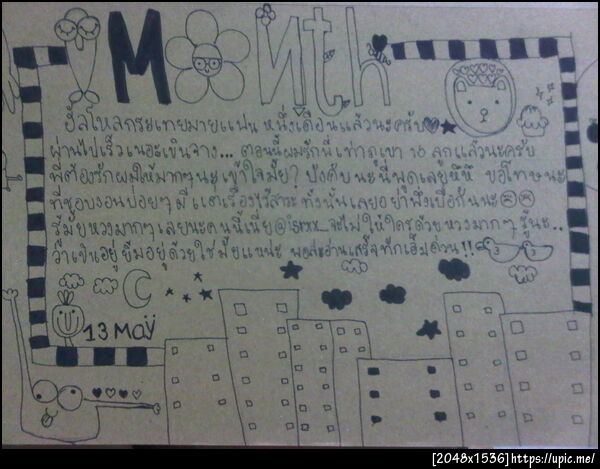 1 Month
ฮัลโหลกระเทยมายแฟน หนึ่งเดือนแล้วนะครับ
ผ่านไปเร็วเนอะเขินจาง... ตอนนี้ผมรักพี่เท่าภูเขา 10 ลูกแล้วนะครับ
พี่ต้องรักผมให้มากๆนะ เข้าใจมั้ย? บังคับนะนี่พูดเลยหึหึ ขอโทษนะ
ที่ชอบงอนบ่อยๆ มีแต่เรื่องไร้สาระ ทั้งนั้นเลยอย่าพึ่งเบื่อกันนะ
รู้มั้ยหวงมากๆเลยนะคนนี้เนี่ย จะไม่ให้ใครด้วยหวงมากๆ รู้นะ..
ว่าเขินอยู่ยิ้มอยู่ด้วยใช่มั้ยแหน่ะ อ่านเสร็จทักเอ็มด่วน!!
13 May
[2048x1536]https://upic.me/